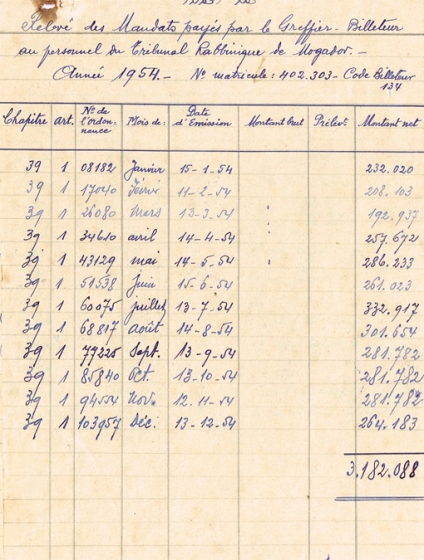 Relevé des Mandats payés par le Greffier-Billeteur
au personnel du Tribunal Rabbinique de Mogador.-
Année 1954.- N° matricule: 402.303 - Code Billeteur
134
Chapitre art. N° de l'ordon-nance Mois de: Date d'Emission Montant brut Prélevt Montant net
39 1 08182 Janvier 15-1-54 232.020
39 1 17040 Février 11-2-54 208.103
39 1 26080 Mars 13-3-54 192.937
39 1 34610 avril 14-4-54 257.672
39 1 43129 mai 14-5-54 286.233
39 1 51538 Juin 15-6-54 261.023
39 1 60075 juillet 13-7-54 332.917
39 1 68817 août 14-8-54 301.654
39 1 77225 Sept. 13-9-54 281.782
39 1 85840 Oct. 13-10-54 281.782
39 1 94554 Nov. 12-11-54 281.782
39 1 103957 Déc. 13-12-54 264.183
3.182.088